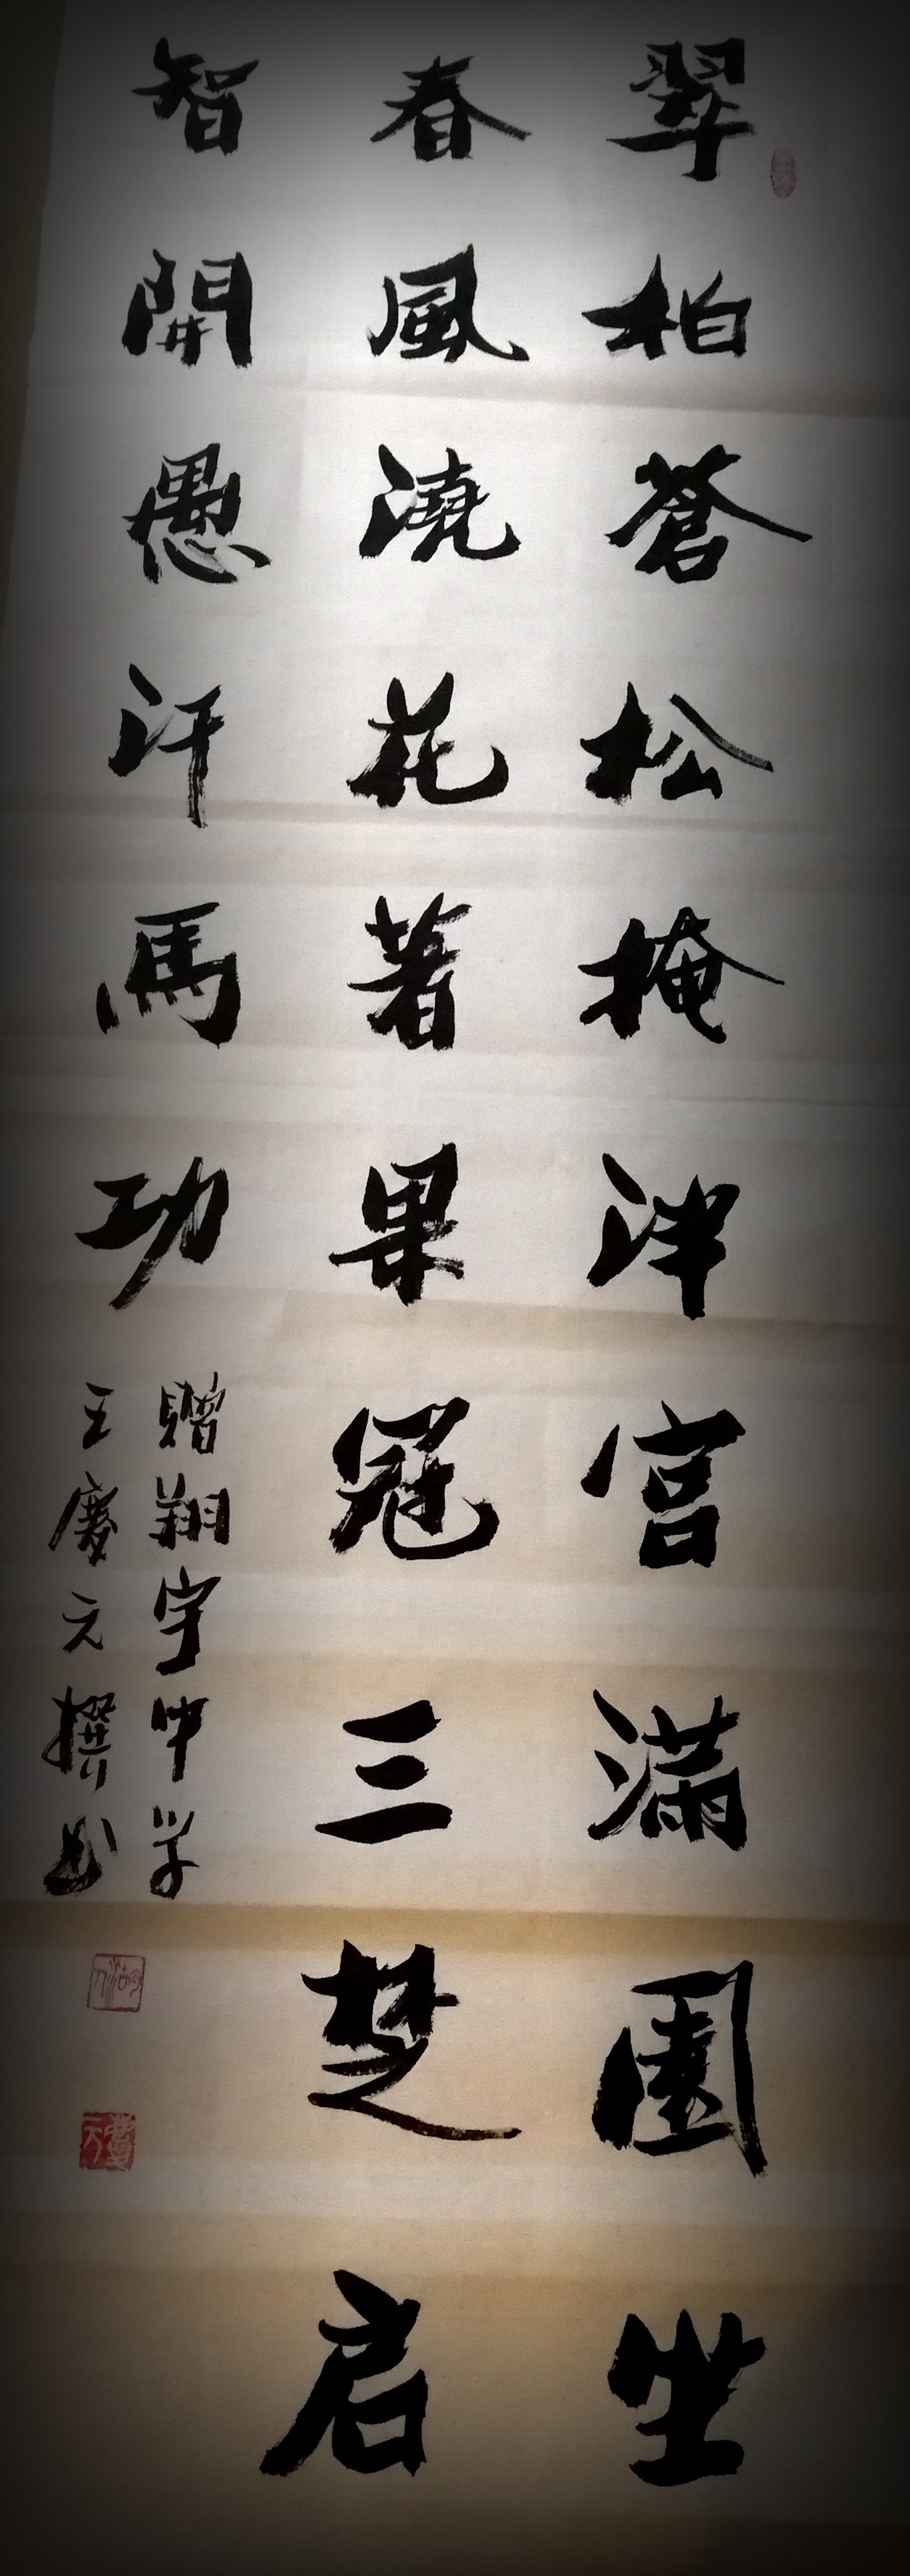 翠柏蒼松掩泮宮滿園坐
春風澆花著果冠三楚启
智開愚汗馬功
贈翔宇中学
王慶元撰书